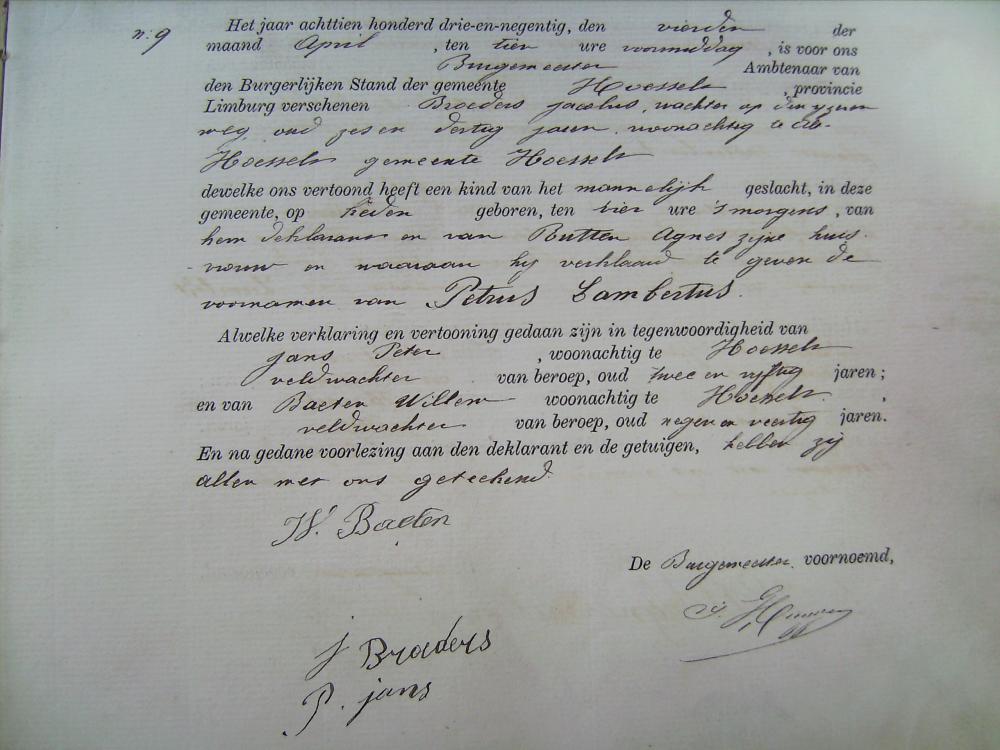 n: 9
Het jaar achttien honderd drie-en-negentig, den vierden der
maand April , ten tien ure voormiddag , is voor ons
Burgemeester Ambtenaar van
den Burgerlijken Stand der gemeente Hoesselt , provincie
Limburg verschenen Broeders jacobus, wachter op den yzeren
weg, oud zes en dertig jaren, woonachtig te
Hoesselt gemeente Hoesselt
dewelke ons vertoond heeft een kind van het mannelijk geslacht, in deze
gemeente, op heden geboren, ten vier ure 's morgens , van
hem deklarant en van Rutten Agnes zijne huis-
vrouw en waaraan hij verklaard te geven de
voornamen van Petrus Lambertus.
Alwelke verklaring en vertooning gedaan zijn in tegenwoordigheid van
jans Peter , woonachtig te Hoesselt
veldwachter van beroep, oud twee en vijftig jaren ;
en van Baeten Willem woonachtig te Hoesselt ,
veldwachter van beroep, oud negen en veertig jaren.
En na gedane voorlezing aan den deklarant en de getuigen, hebben zij
allen met ons geteekend.
W. Baeten
De Burgemeester voornoemd,
j Broeders
P. jans